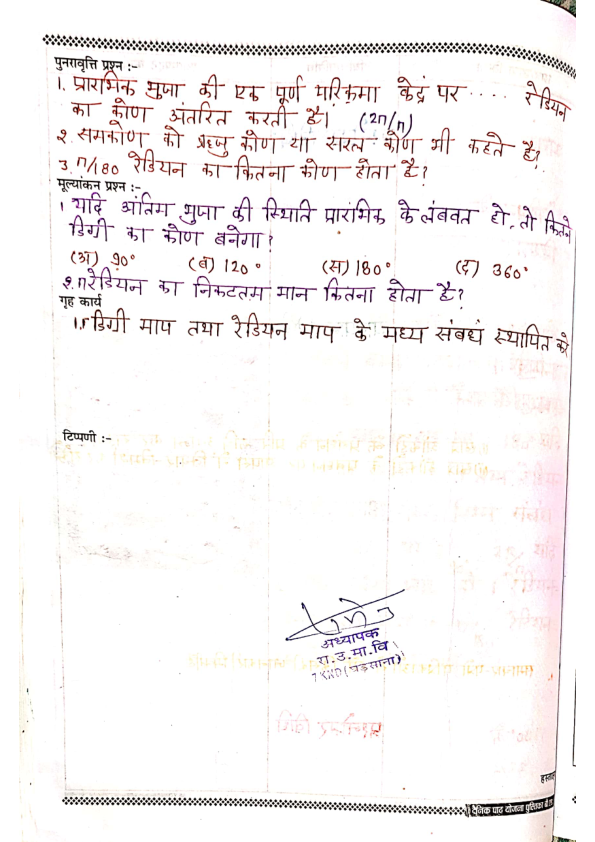 पुनरावृत्ति प्रश्न :-
1. प्रारंभिक भुजा की एक पूर्ण परिक्रमा केंद्र पर .... रेडियन
का कोण अंतरित करती है। (2π/π)
2. समकोण को ऋजु कोण या सरल कोण भी कहते है?
3. π/180 रेडियन का कितना कोण होता है?
मूल्यांकन प्रश्न :-
1 यदि अंतिम भुजा की स्थिति प्रारंभिक के लंबवत हो, तो कितने
डिग्री का कोण बनेगा?
(अ) 90° (ब) 120° (स) 180° (द) 360°
2. π रेडियन का निकटतम मान कितना होता है?
गृह कार्य
1. डिग्री माप तथा रेडियन माप के मध्य संबंध स्थापित करे
टिप्पणी :-
अध्यापक
रा.उ.मा.वि
7 KND (घड़साना)
दैनिक पाठ योजना पुस्तिका